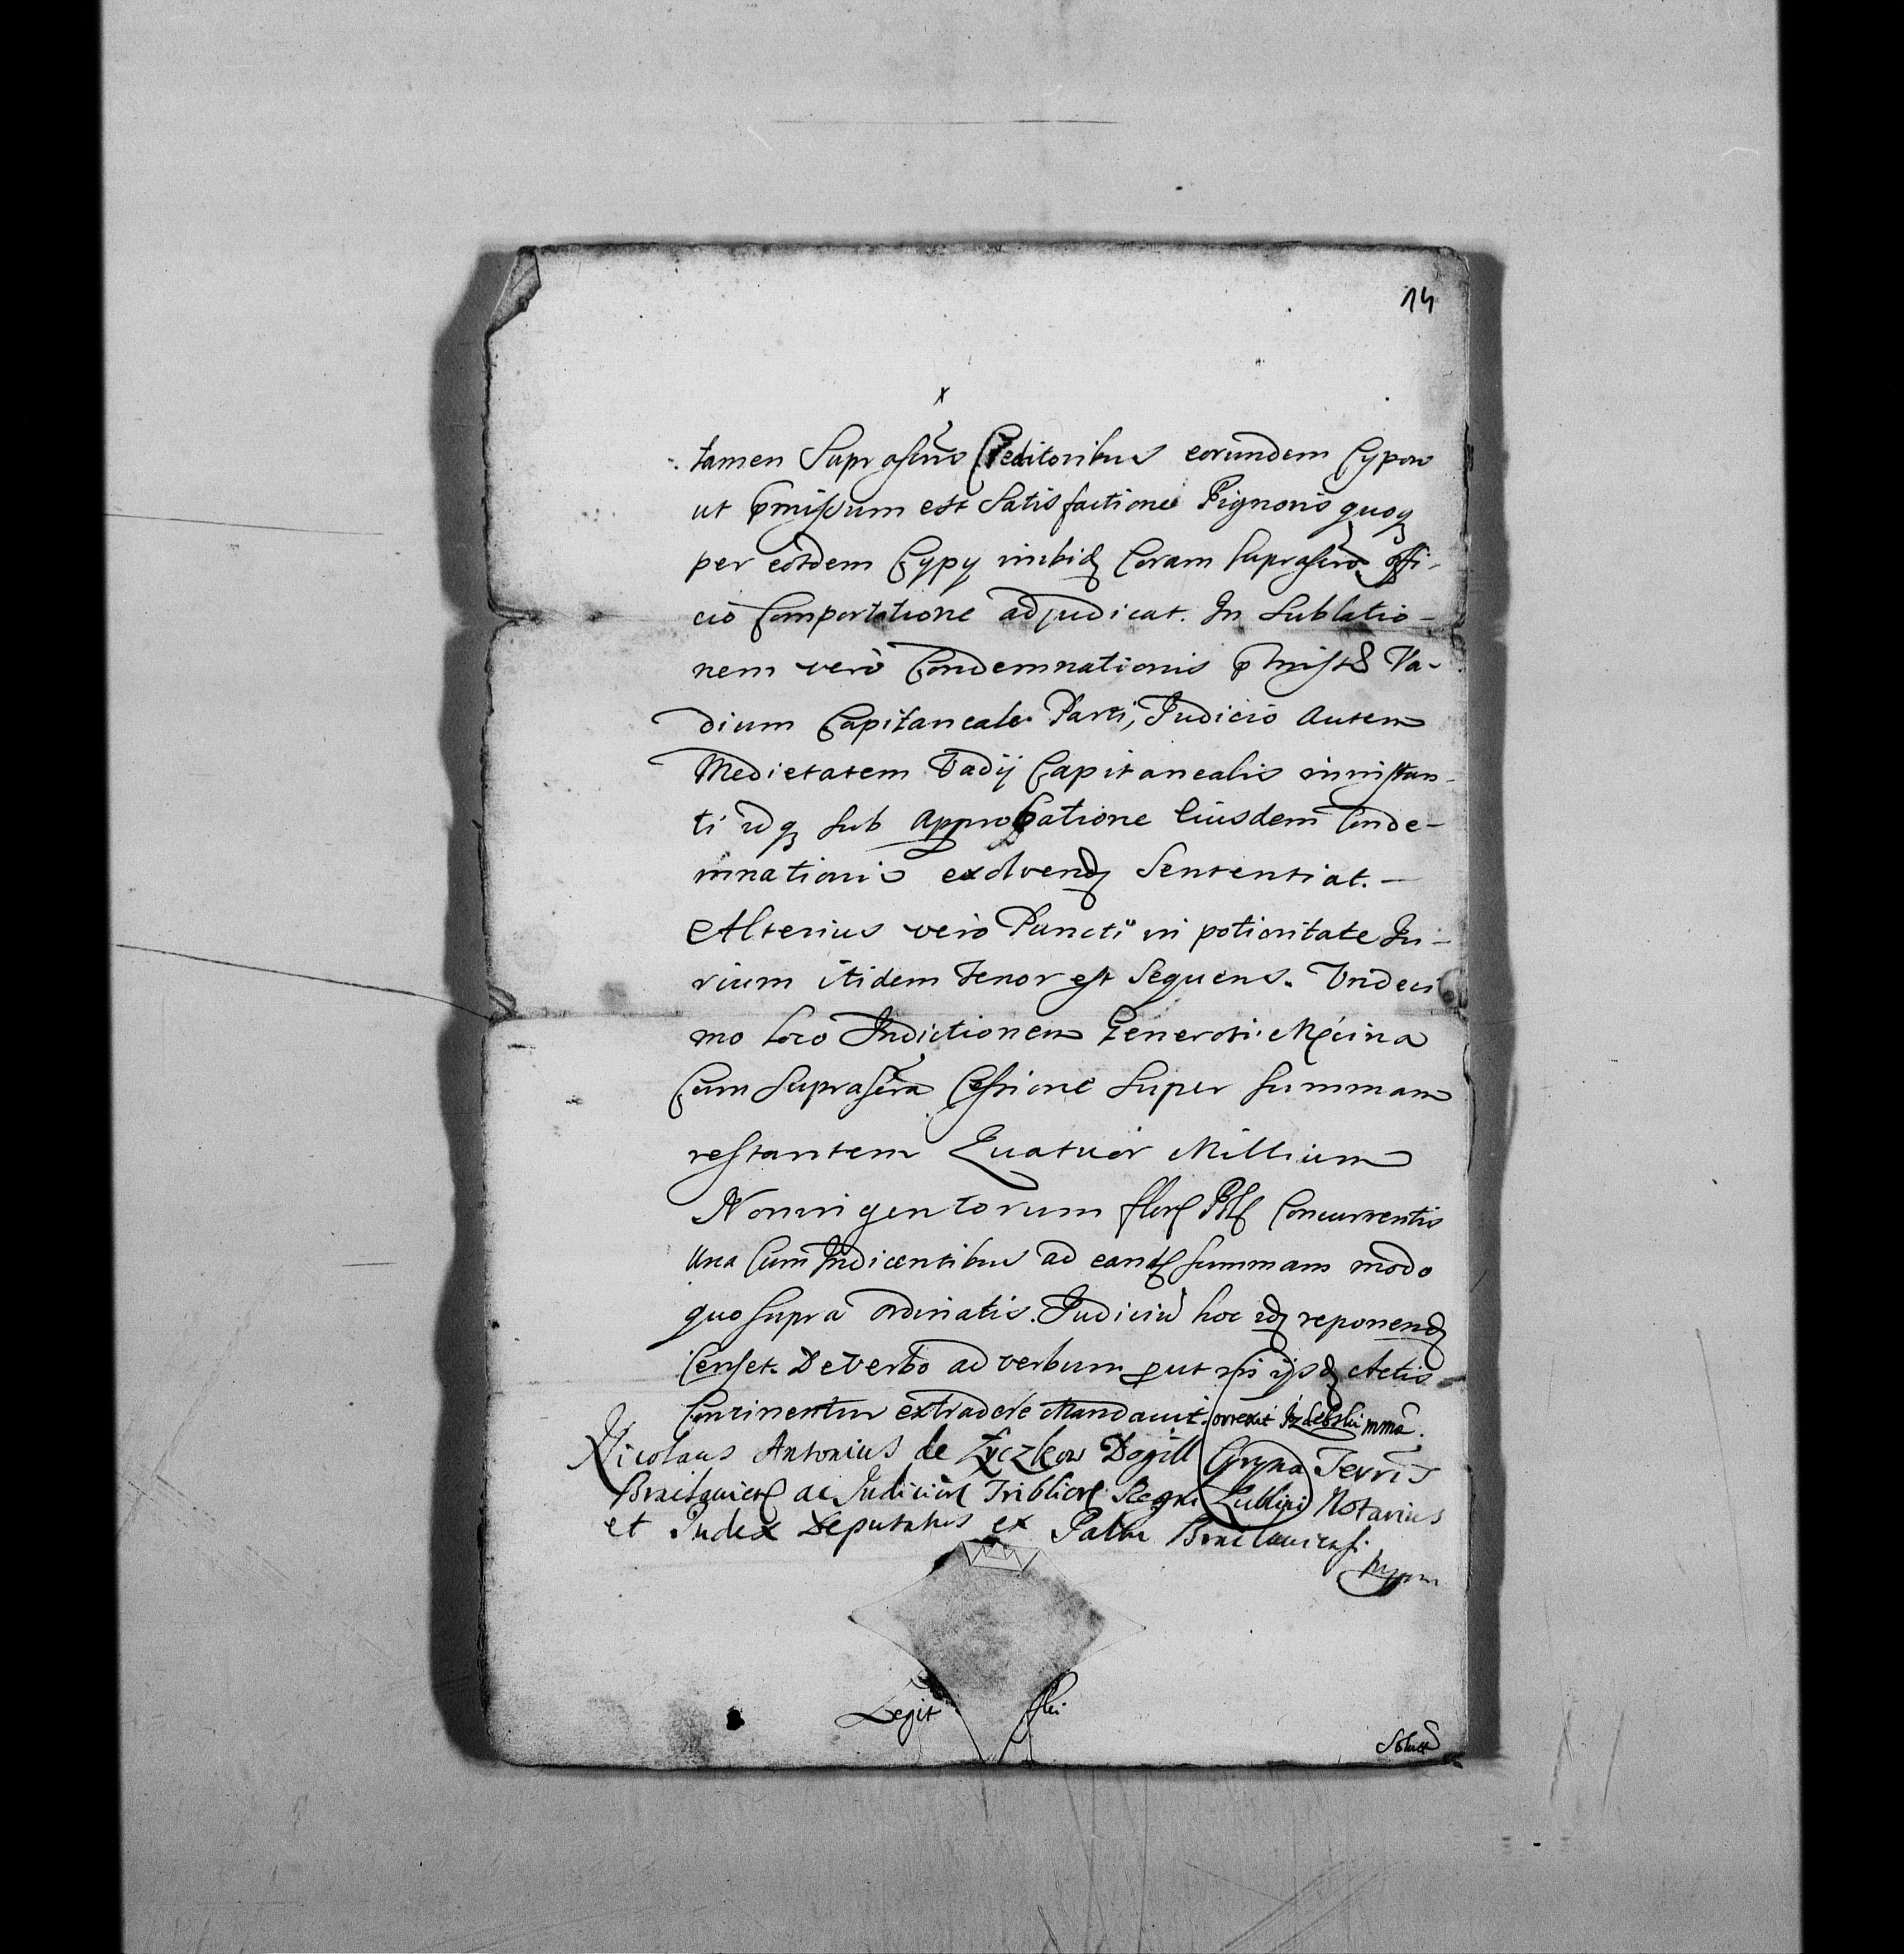 14
x
tamen Suprascris Creditoribus eorundem Cypow
ut pmissum est Satisfactione Pignoris quoq
per eosdem Cypy inibiq Coram Suprascro offi-
cio Comportatione adjudicat. In Sublatio-
nem verò Condemnationis Va-
dium Capitaneale Parti, Judicio autem
Medietatem Vadij Capitanealis
ti idq sub approbatione Eiusdem Conde-
mnationis exolvend Sententiat.-
Alterius verò Puncti in potioritate Ju-
rium itidem tenor est Sequens. Undeci
mo loco Indictionem Generosi Męcina
Cum Suprascra Cessione Super Summam
restantem Quatuor Millium
Noningentorum flor Pol Concurrentis
una Cum Indicentibus ad eand Summam modo
quo supra ordinatis. Judiciū hoc idq reponend
Censet. De verbo ad verbum put in ijsd Actis
Continentur extradere Mandavit. Correxit Izdebski mmā.
Nicolaus Antonius de Zyczkow Dogill Cyryna Terrīs
Braclavien ac Judicior Triblior Regni Lublini Notarius
et Judex Deputatus ex Paltu Braclaviensi.
mppm
Legit